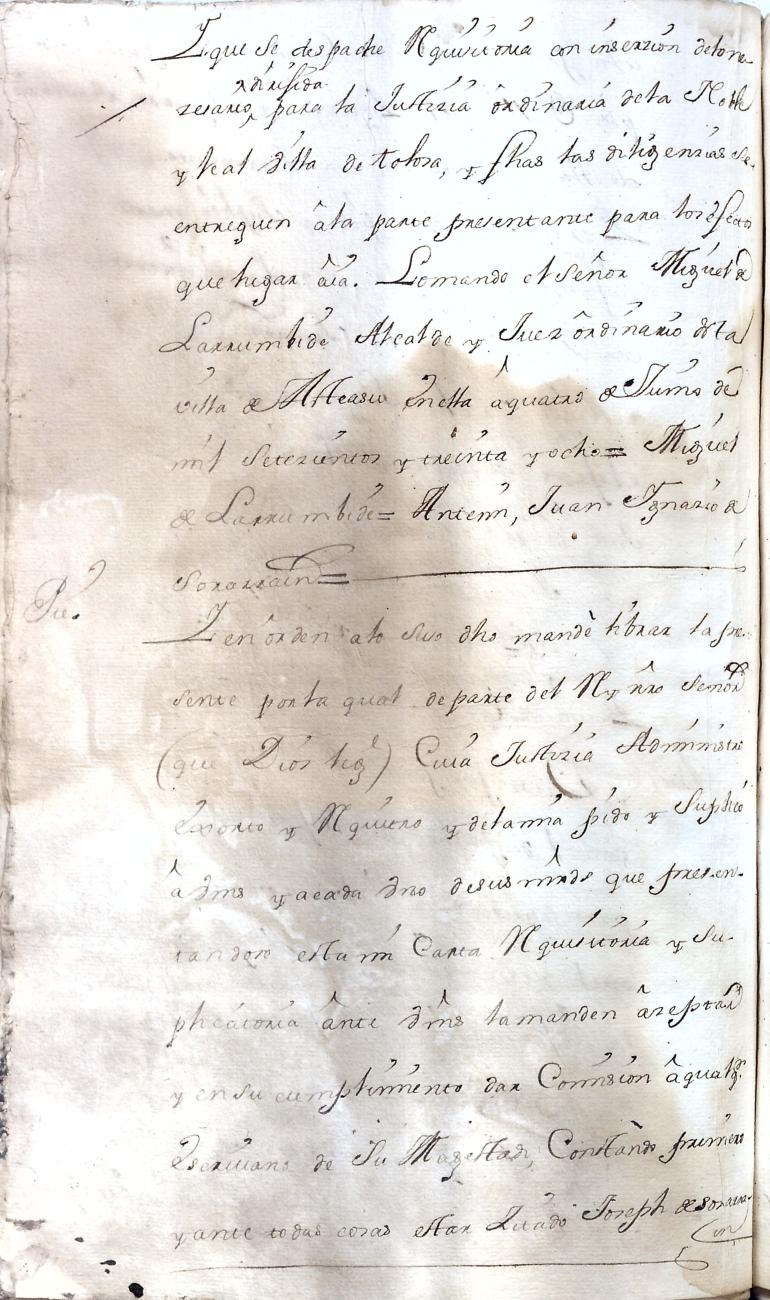 Y que se despache Rquisitoria con inserzion delone-
zesario, dirisida para la Justizia ôrdinaria dela Noble
y leal villa de tolosa, y fhas las dilixenzias se
entreguen âla parte presentante para los efectos
que lugar âia. Lo mando el señor Miguel de
Larrumbide Alcalde y Juez ôrdinario dela
villa de Asteasu en ella â quatro de Junio de
mil setezientos y treinta y ocho = Miguel
de Larrumbide = Antemi, Juan Ignazio de
Sorarrain =
Y en ôrden alo suso dho mandè librar la pre-
sente por la qual de parte del Rey nro señor
(que Dios lege) Cuia Justizia Administro
exorto y Rquiero y dela mia pido y suplico
â vms y acada vno desus mrds que presen-
tandose esta mi Carta Rquisitoria y su-
plicatoria ânte vms la manden âzeptar
y en su cumplimiento dar Comision âqualqr
escriuano de Su Magestad, Constando primero
y ante todas cosas estar Zitado Joseph de Sorarra-
in